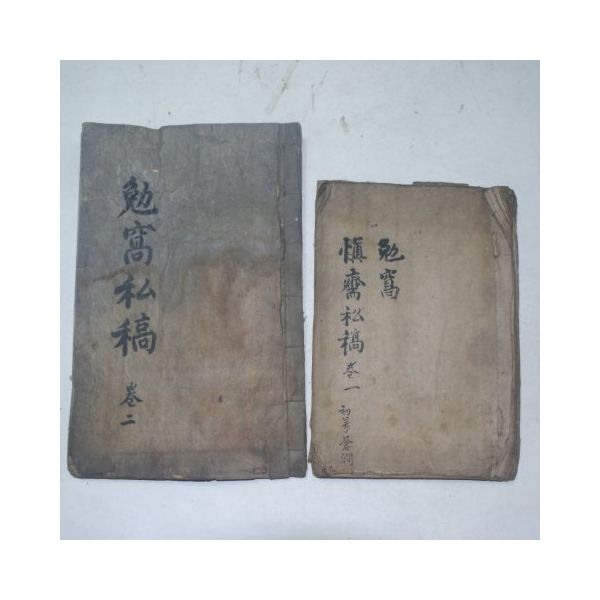 勉窩私稿
卷二
勉窩
愼齋私稿 卷一
初号蒼澗